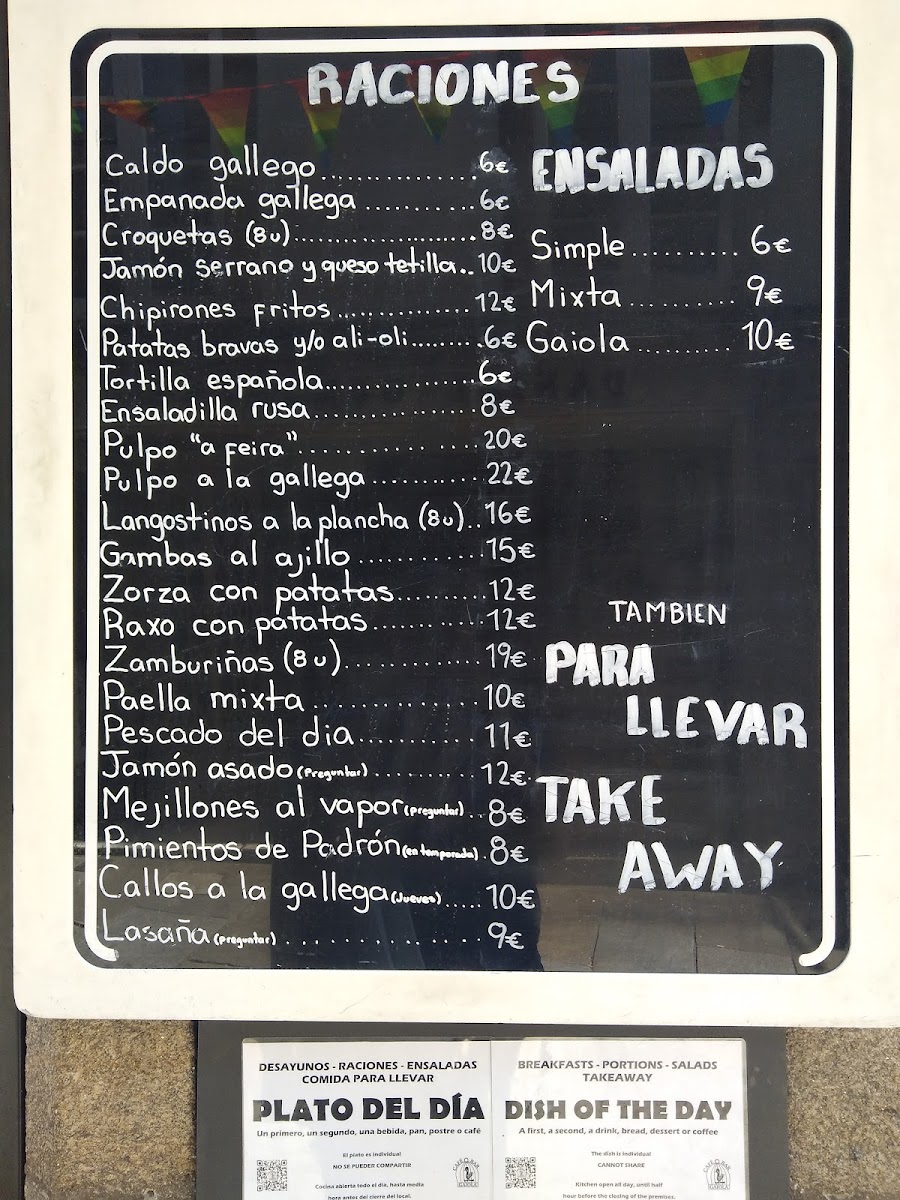 RACIONES
Caldo gallego................6€
Empanada gallega...........6€
Croquetas (8u).......................8€
Jamón serrano y queso tetilla..10€
Chipirones fritos................12€
Patatas bravas y/o ali-oli........6€
Tortilla española.................6€
Ensaladilla rusa..................8€
Pulpo "a feira"..................20€
Pulpo a la gallega............22€
Langostinos a la plancha (8u)..16€
Gambas al ajillo............15€
Zorza con patatas..........12€
Raxo con patatas............12€
Zamburiñas (8u)...............19€
Paella mixta..................10€
Pescado del dia............11€
Jamón asado (Preguntar)..........12€
Mejillones al vapor (preguntar)..8€
Pimientos de Padrón (en temporada).8€
Callos a la gallega (Jueves).....10€
Lasaña (preguntar)................9€
ENSALADAS
Simple..........6€
Mixta..........9€
Gaiola.........10€
TAMBIEN
PARA
LLEVAR
TAKE
AWAY
DESAYUNOS - RACIONES - ENSALADAS
COMIDA PARA LLEVAR
PLATO DEL DÍA
Un primero, un segundo, una bebida, pan, postre o café
El plato es individual
NO SE PUEDE COMPARTIR
Cocina abierta todo el día, hasta media
hora antes del cierre del local.
BREAKFASTS - PORTIONS - SALADS
TAKEAWAY
DISH OF THE DAY
A first, a second, a drink, bread, dessert or coffee
The dish is individual
CANNOT SHARE
Kitchen open all day, until half
hour before the closing of the premises.